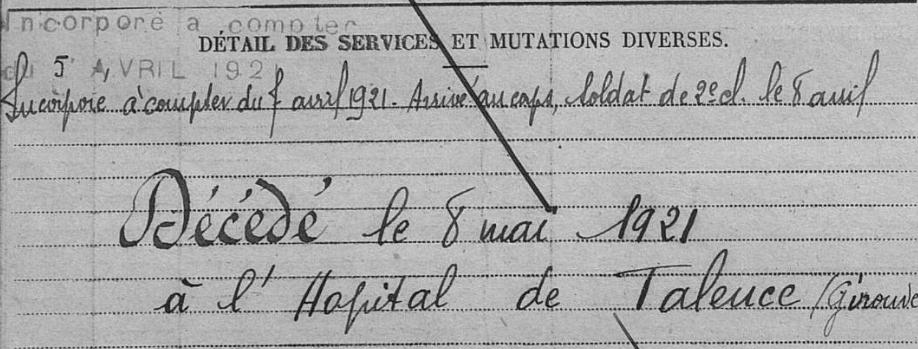 Incorporé à compter
DÉTAIL DES SERVICES ET MUTATIONS DIVERSES.
du 5 AVRIL 192
Incorporé à compter du 5 avril 1921. Arrivé au corps, soldat de 2e cl. le 8 avril
Décédé le 8 mai 1921
à l' Hopital de Talence (Gironde